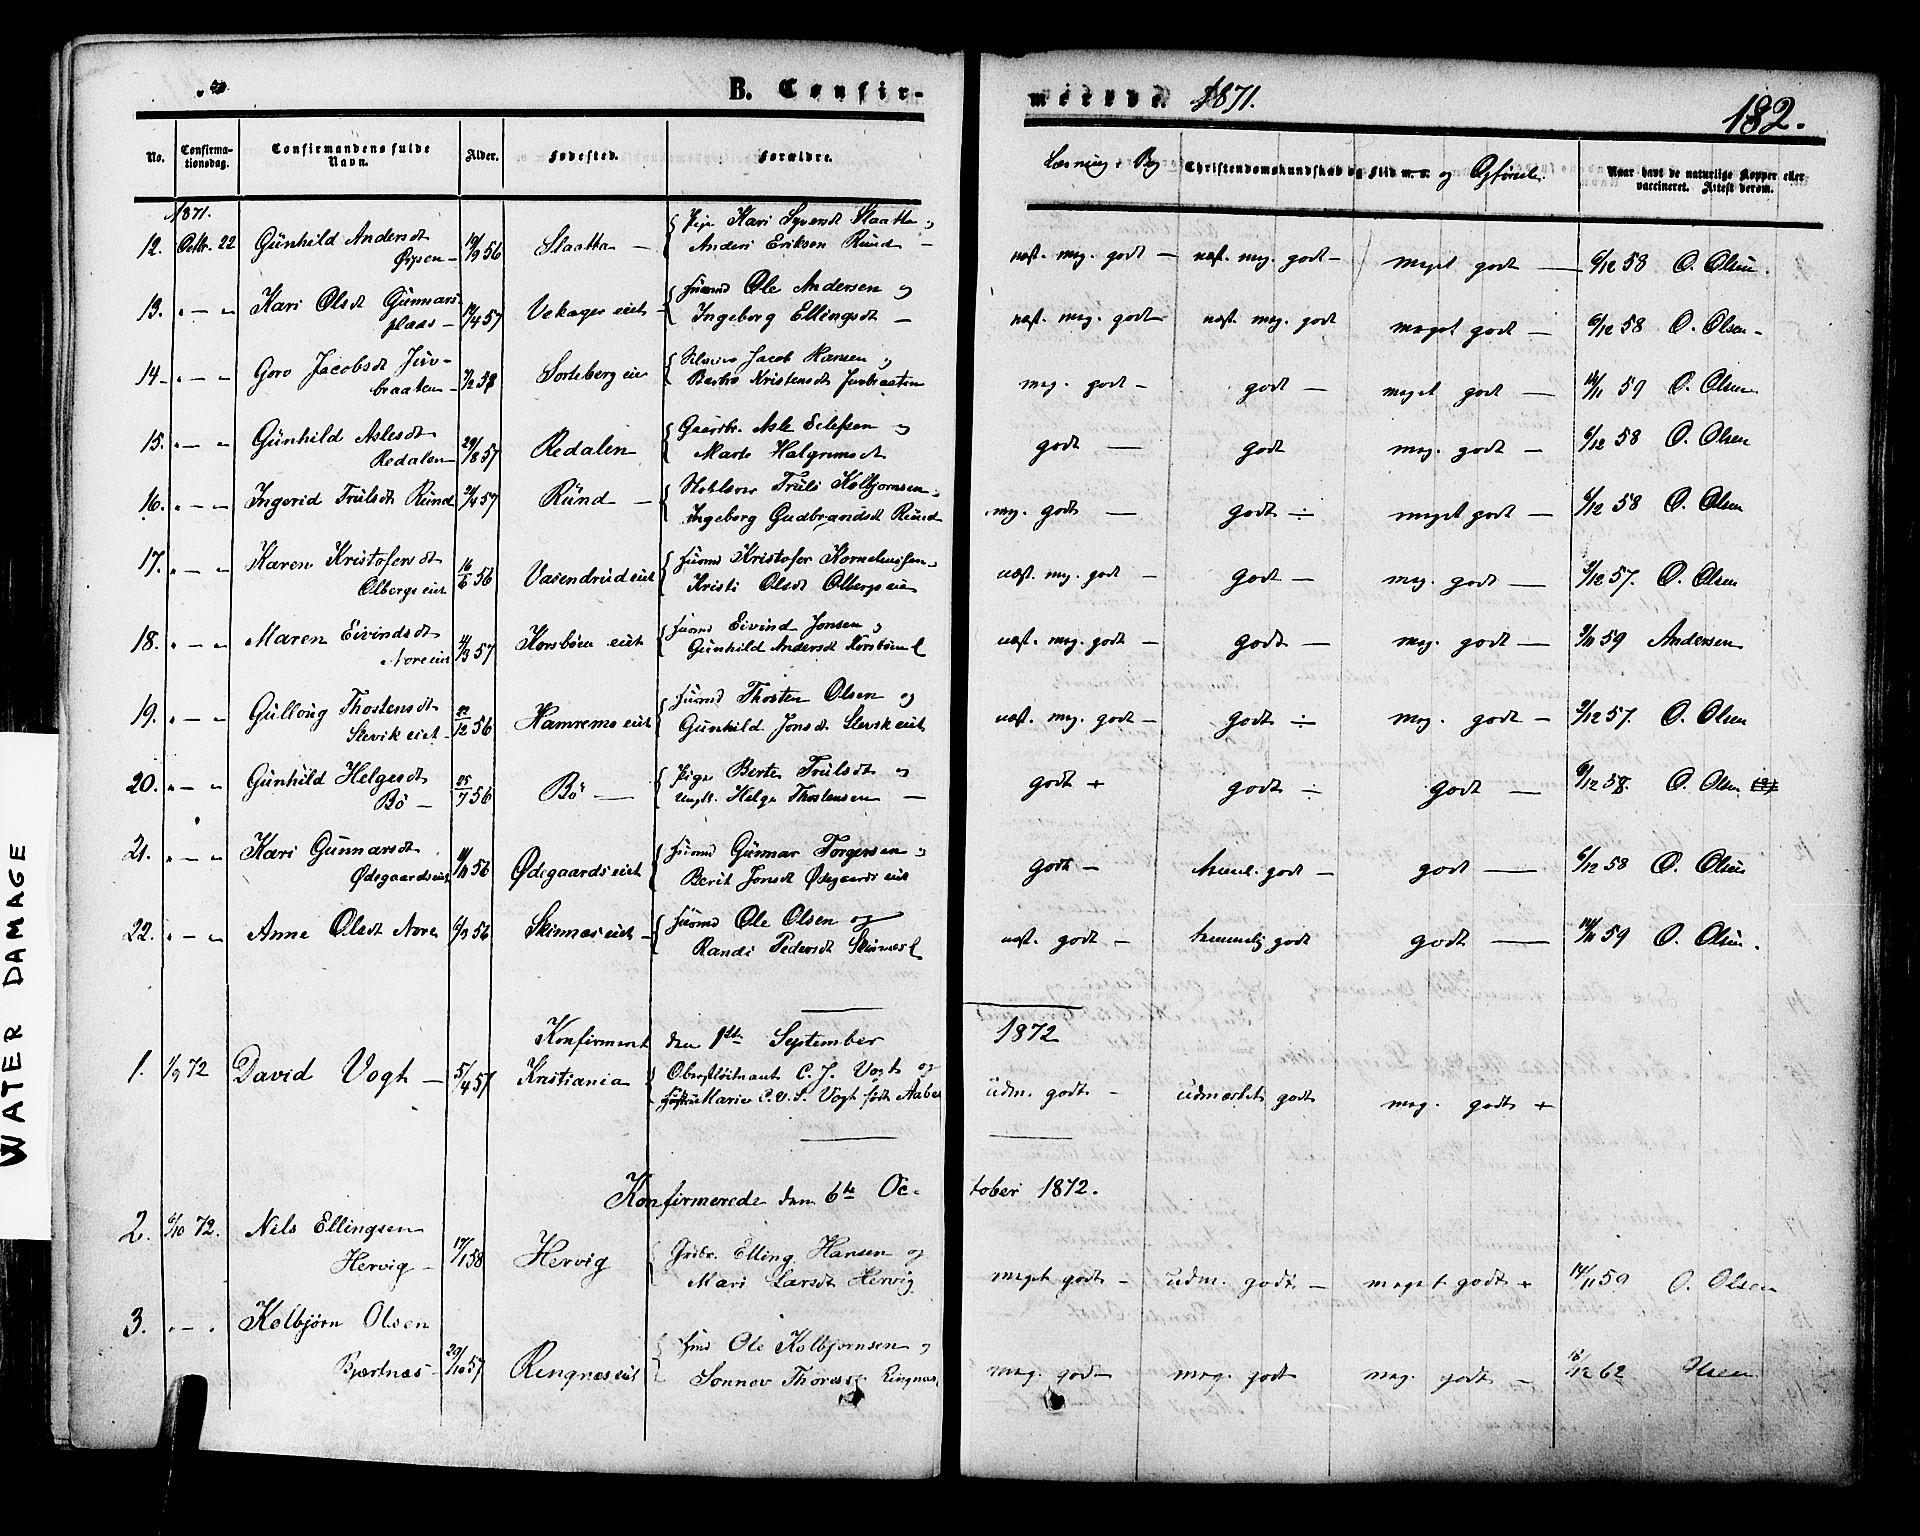 B. Confir-
merede. 1871.
182.
No.
Confirma-
tionsdag.
Confirmandens fulde
Navn.
Alder.
Fødested.
Forældre.
Læsning i Bog
Christendomskundskab og Flid m. v. og Opførsel.
Naar havt de naturlige Kopper eller
vaccineret. Attest derom.
1871.
12. Octbr. 22 Günhild Andersdt 56 Slaatta — Pige Kari Syversdt Slaatta og
Anders Eriksen Ründ —
næst. meg. godt — næst. meg. godt — meget godt — 6/12 58 O. Olsen.
13. " — " Kari Olsdt Günnars-
plads — 57 Vekager eiet — Huusmd Ole Andersen og
Ingeborg Ellingsdt —
næst. meg. godt næst. meg. godt meget godt — 6/12 58 O. Olsen —
14 — " — " Goro Jacobsdt Juv-
braaten — Sorteberg eie Jacob Hansen og
Barbro Kristensdt Juvbraaten
meg. godt — godt — meget godt — 59 O. Olsen
15. " — " Günhild Aslesdt
Redalen — 29/8 57 Redalen Gaardbr. Asle Eilefsen og
Marte Halgrimsdt
godt — godt meg. godt — 6/12 58 O. Olsen
16. " — " Ingerid Trülsdt Ründ 57 Ründ — Truls Kolbjørnsen og
Ingeborg Gudbrandsdt Ründ
meg. godt — godt ÷ meget godt — 6/12 58 O. Olsen
17. " — " Karen Kristofersdt
Olbergs eiet 16/6 56 Vasendrud eiet Huusmd Kristofer Korneliussen og
Kristi Olsdt Olbergs eie
næst. meg. godt — godt — meg. godt — 9/12 57. O. Olsen
18. " — " Maren Eivindsdt
Nore eiet 57 Korsbøen eiet Huusmd Eivind Jonsen og
Günhild Andersdt Korsbøen
næst. meg. godt — godt — meg. godt — 9/11 59 Andersen
19. " — " Gülloug Thostensdt
Slevik eiet — 22/12 56 Hamremo eiet Huusmd Thosten Olsen og
Gunhild Jonsdt Slevik eiet
næst. meg. godt — godt ÷ meg. godt — 9/12 57. O. Olsen
20. " — " Günhild Helgesdt
Bö — 25/7 56 Bö — Pige Berte Trülsdt og
Ungk. Helge Thostensen —
godt + godt ÷ godt — 6/12 58. O. Olsen
21. " — " Kari Günnarsdt
Ødegaards eiet 56 Ødegaards eiet Huusmd Günnar Torgersen og
Berit Jonsdt Ødegaards eiet
godt — temmel. godt — godt — 6/12 58 O. Olsen
22. " — " Anne Olsdt Nore 56 Skinnes eiet — Huusmd Ole Olsen og
Randi Pedersdt Skinnes
næst. godt — temmelig godt godt — 14/11 59 O. Olsen.
Konfirmeret den 1ste September 1872
1. 1/9 72 David Vogt — 5/4 57 Kristiania Oberstløitnant C. J. Vogt og
Marie C. V. S. Vogt født
udm. godt — udmærket godt meg. godt +
Konfirmerede den 6te Oc-
tober 1872.
2. 6/10 72. Nels Ellingsen
Hervig — 17/1 58 Hervig Grdbr. Elling Hansen og
Mari Larsdt Hervig
meget godt — udm. godt — meget godt + 14/11 59 O. Olsen
3. " — " Kolbjørn Olsen
Bjertnæs — 29/10 57 Ringnæs eiet Husmd Ole Kolbjørnsen og
Sønnøv Ringnæs
meg. godt — meg. godt meg. godt — 62 Olsen
WATER DAMAGE